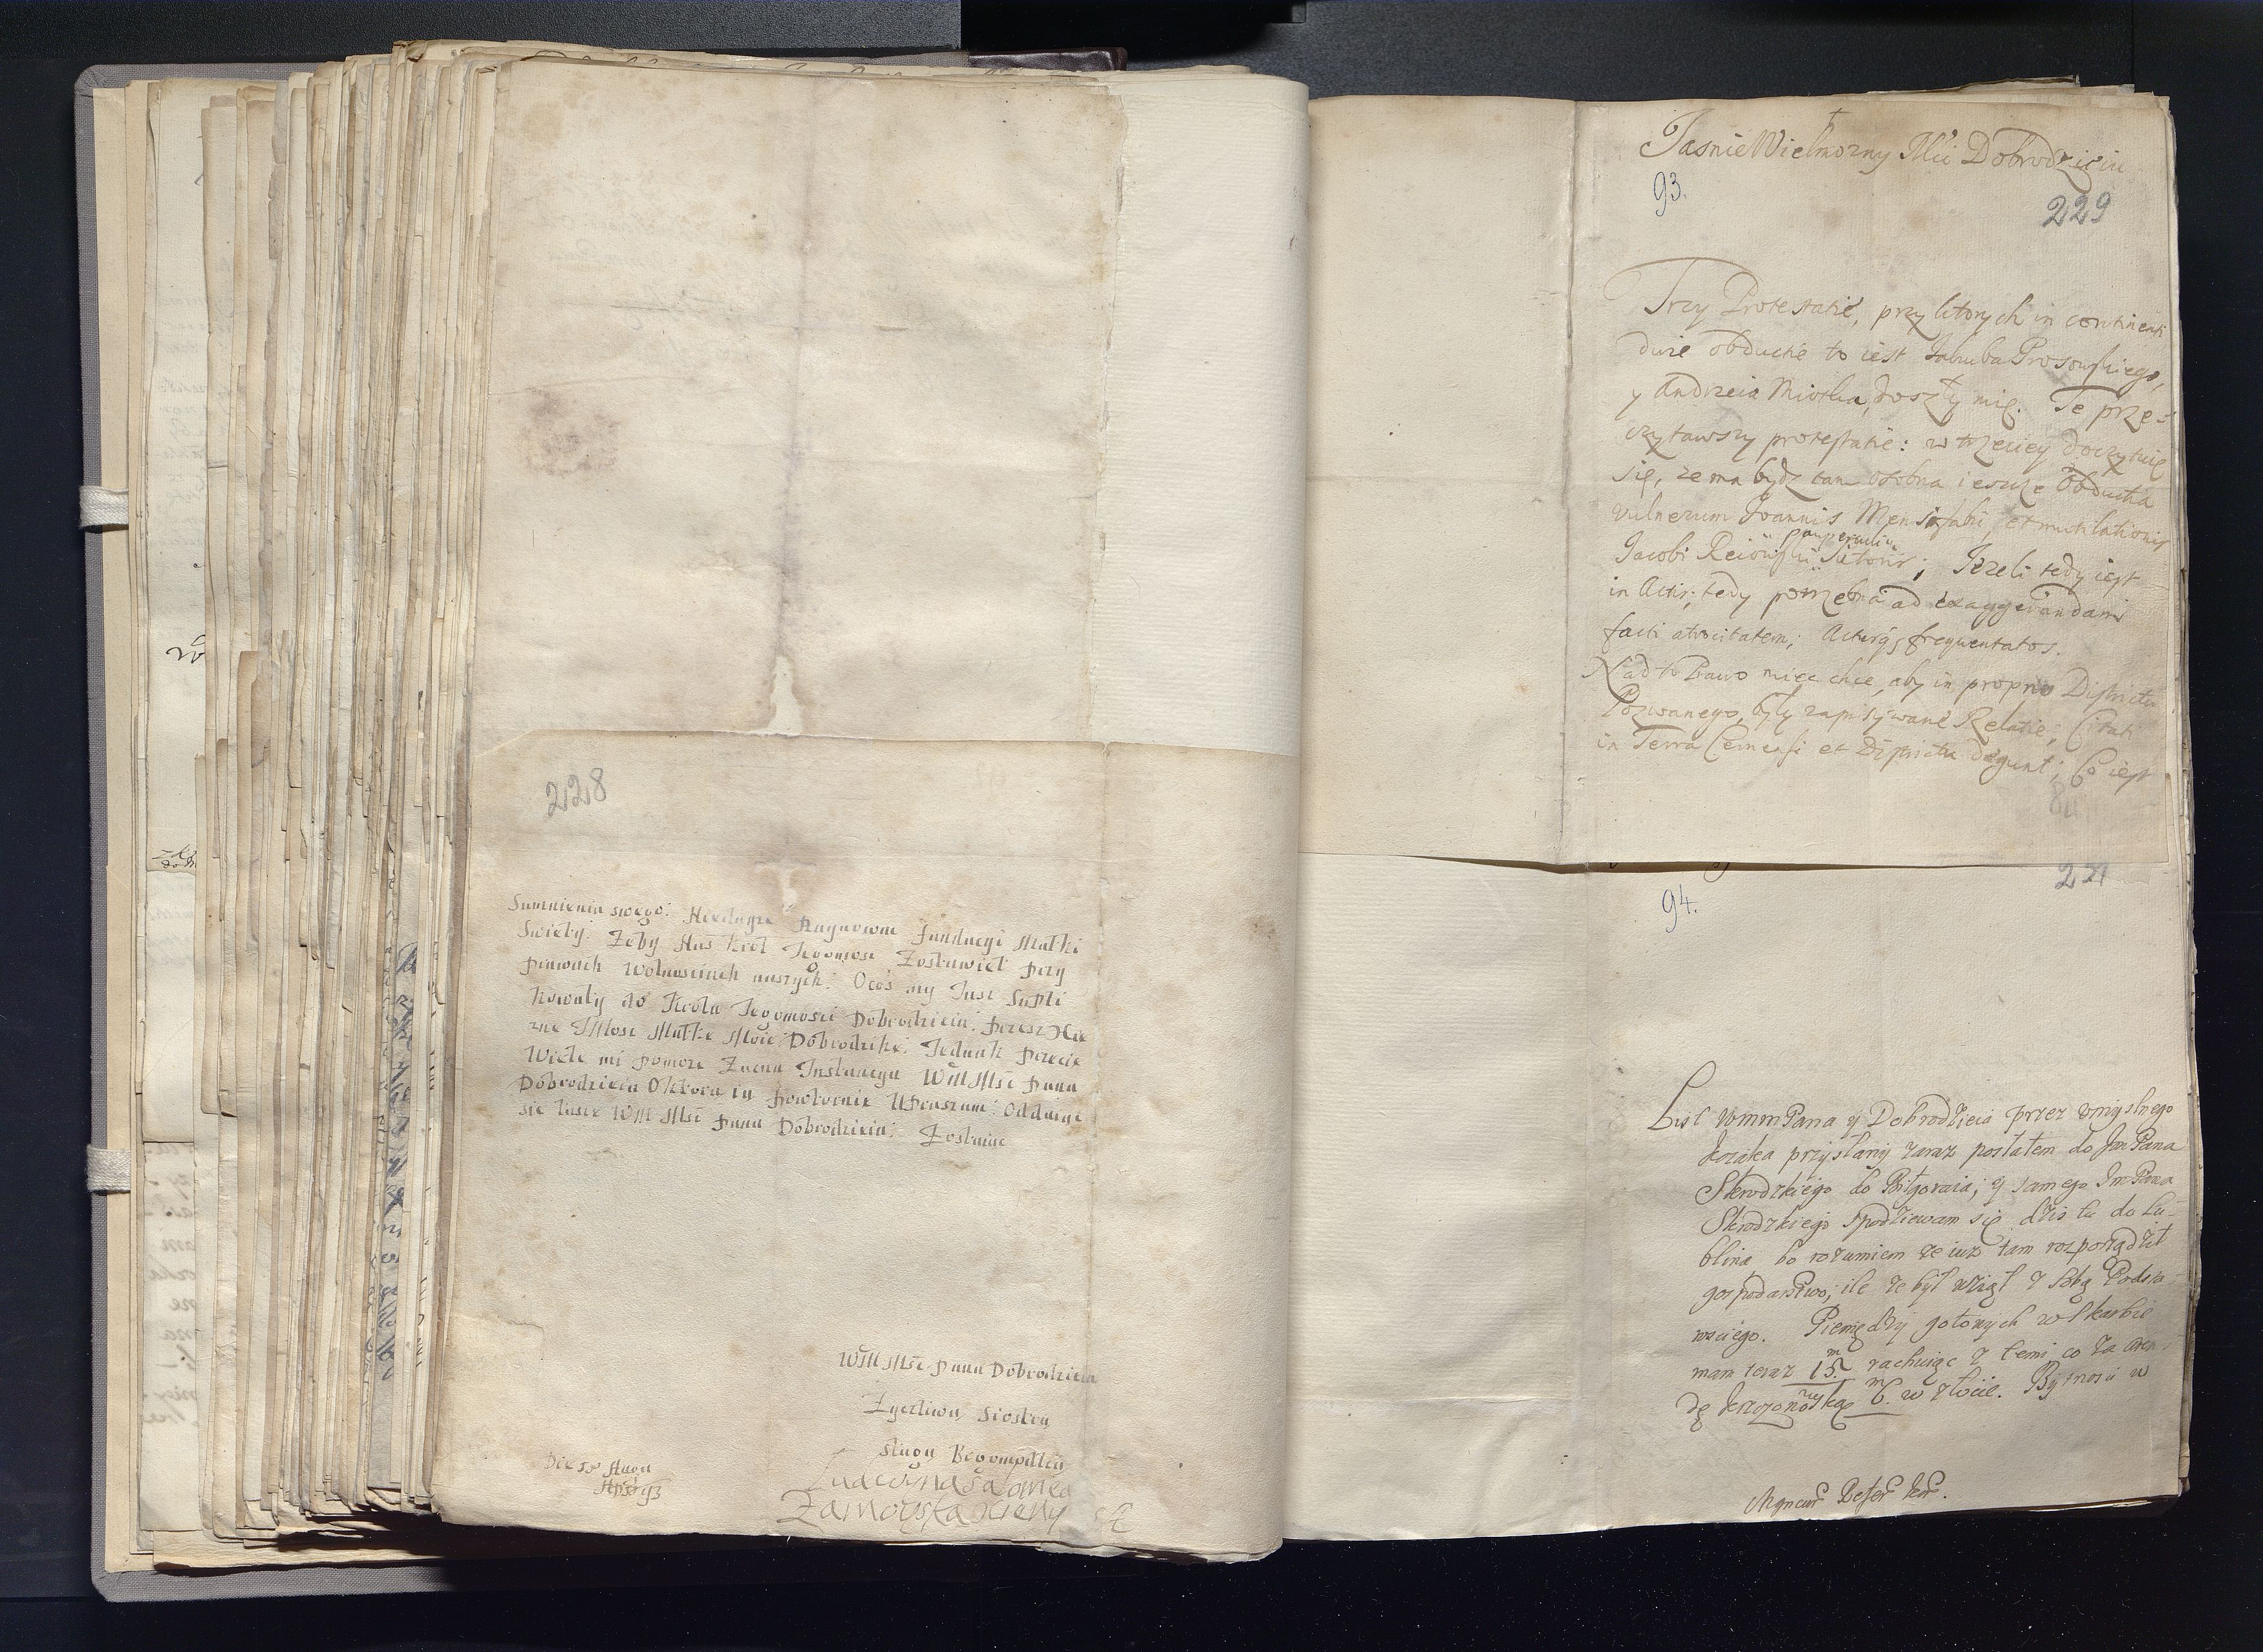 228
Sumnienia swego: Racyovm Fundacyi Matki
Swiety: Zeby Nas Krol Jegomosc Zostawiel przy
prawach Wolnosciach naszych: Ocos my Jusz Supli
kowaly do Krola Jegomosci Dobrodzieia: przesz Xie
zne JMosc Matke Moie Dobrodzike: Jednak przecie
Wiele mi pomoze Zacna Instancya WM Msc pana
Dobrodzieia Oktora iu powtornie Upraszam: Oddaiąc
sie łasce WM Msc pana Dobrodzieia: Zostaiac
WM Msc pana Dobrodzieia
Zyczliwa Siostra
sługa Bogompdlcy
Zamoyska
JasnieWielmozny Mci Dobrodzieiu
93.
229
Trzy Protestatie, przy ktorych in continenti
dwie obductie to iest Jakuba Prosowskiego,
y Andrzeia Miotka, doszły mię. Te prze-
czytawszy protestatie: w trzeciey doczytuię
się, ze ma bydz tam osobna ieszcze Obductia
vulnerum Joannis Mensasatri, et mutilationis
Jacobi Sutoris; Jezeli tedy iest
in Actis; tedy potrzebna ad exaggerandam
facti atrocitatem, Actusqs frequentatos.
Nad to Prawo miec chce, aby in proprio Districtu
Pozwanego, były zapisywane Relatie; Citati
in Terra et Districtu degunt; Co iest
94.
List WmmPana y Dobrodzieia przez vmyslnego
kozaka przysłany zaraz posłałem do JmPana
Skrodzkiego do Biłgoraia; y samego JmPana
Skrodzkiego spodziewam się dzis tu do Lu-
blina, bo rozumiem ze iuz tam rozporządził
gospodarstwo; ile ze był wziął z sobą Podsta-
rosciego. Pieniędzy gotowych w skarbie
mam teraz 15 m rachuiąc z temi co za aren-
dę krzczonowską m 6. w złocie. Bytnosci w